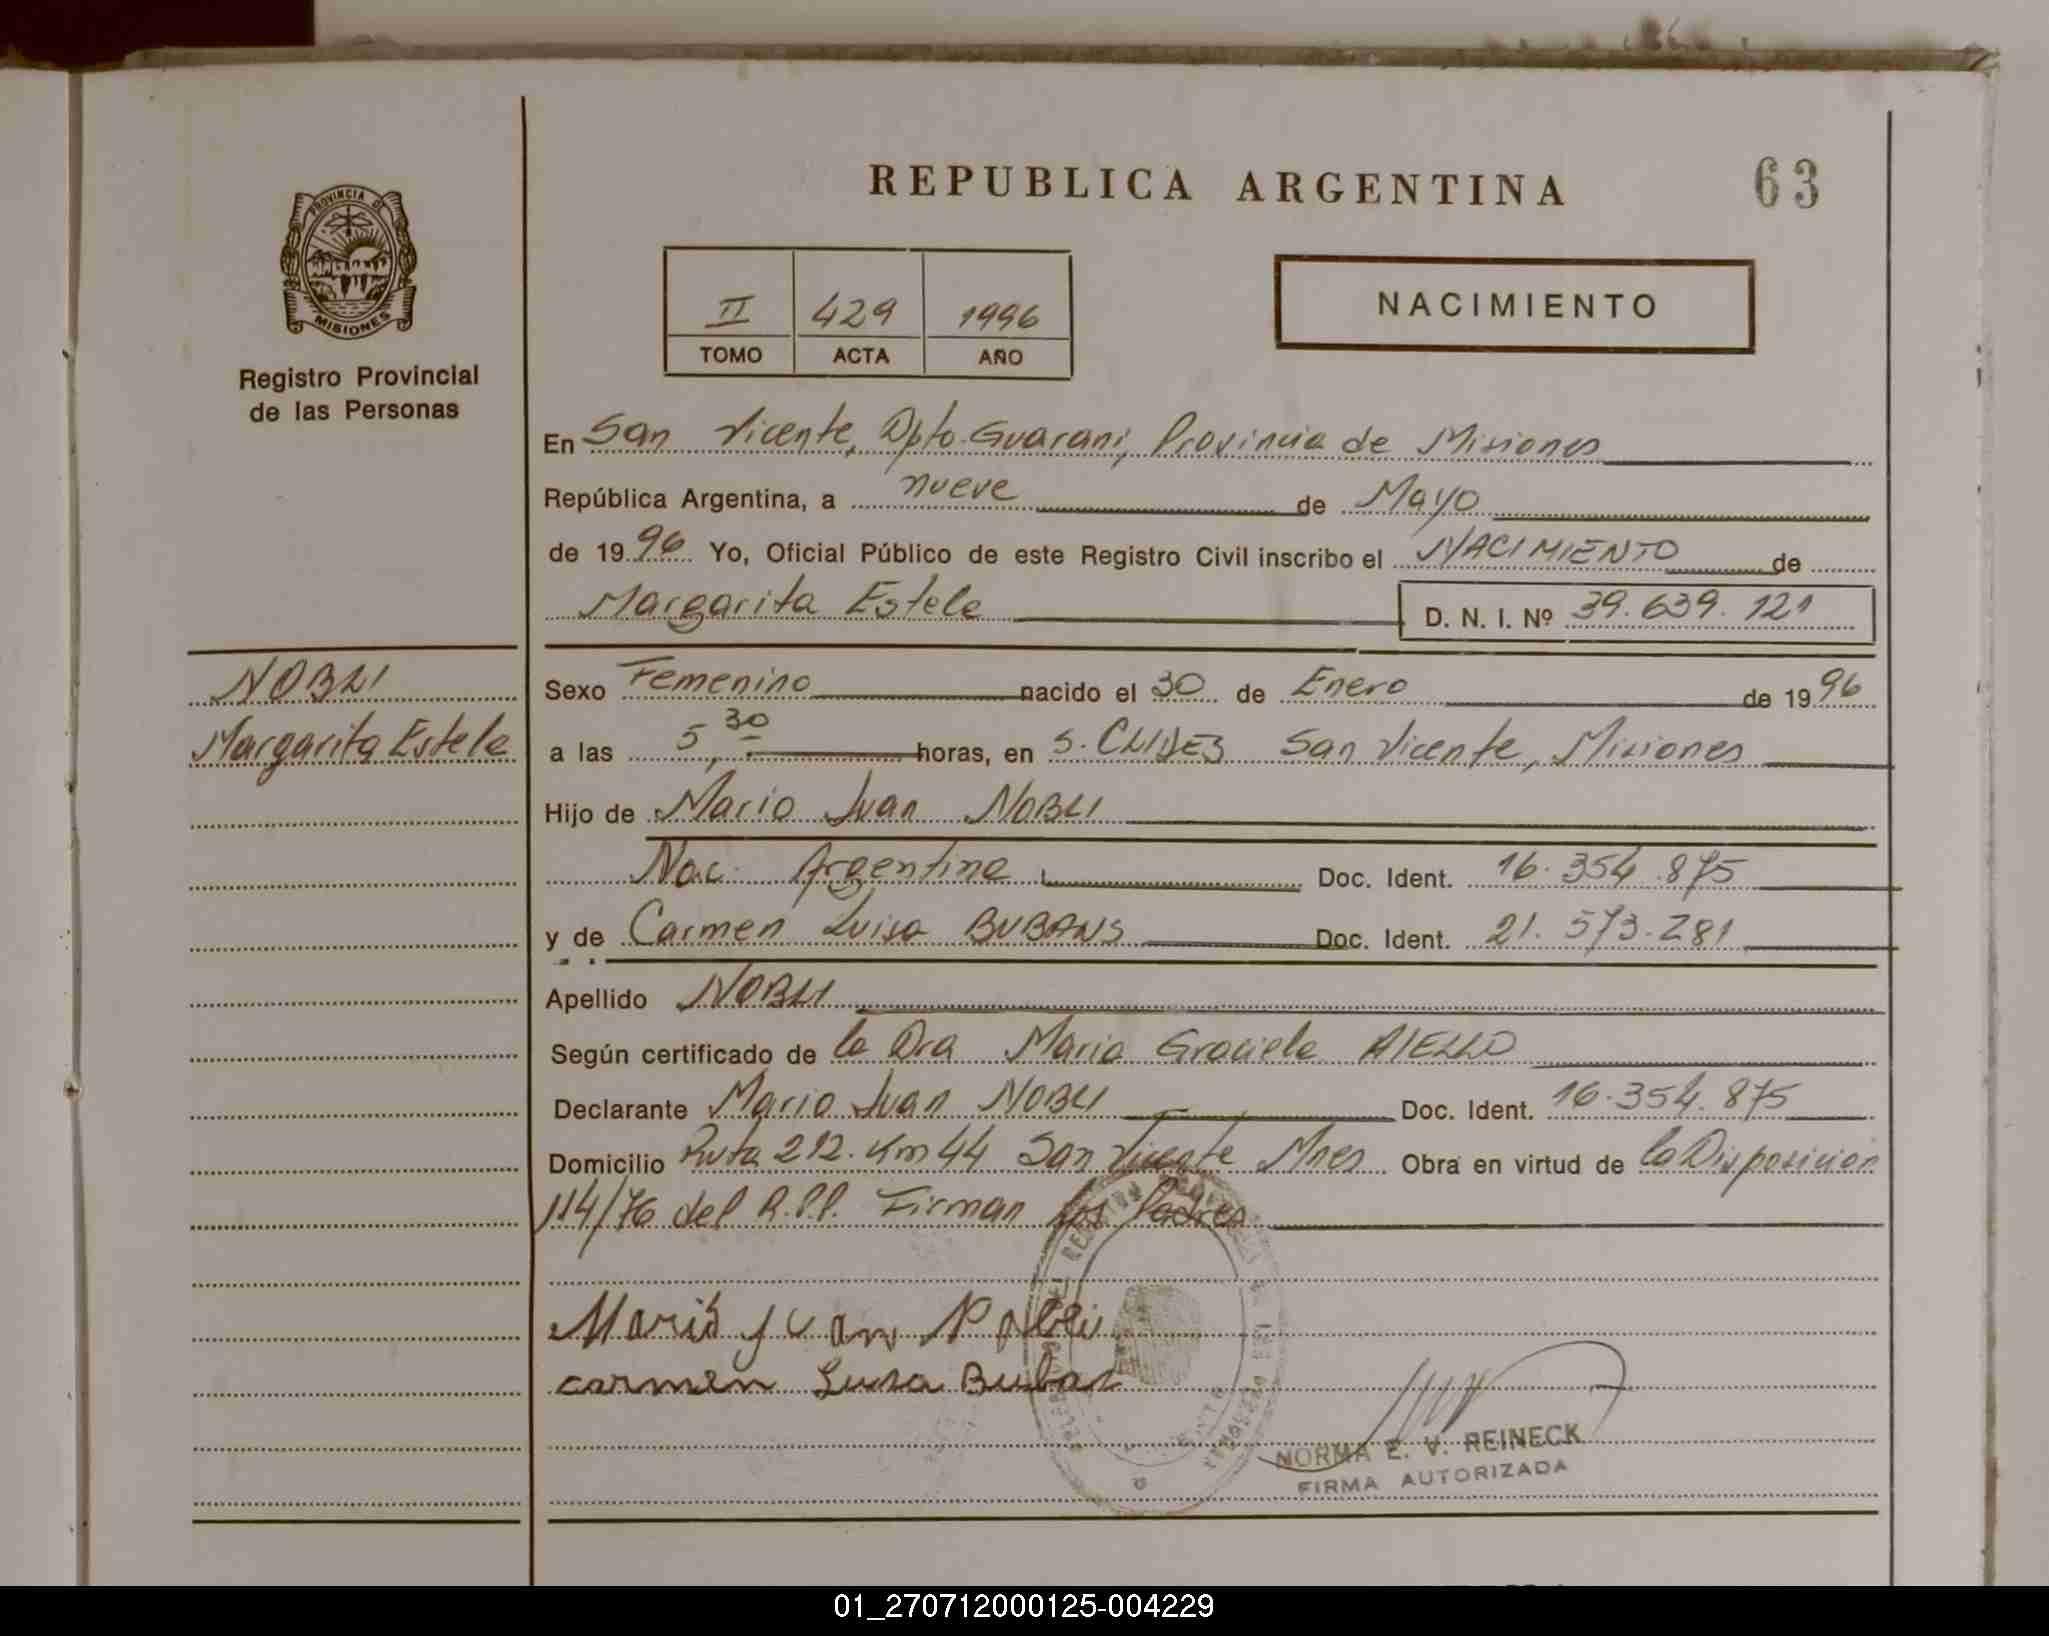 REPUBLICA ARGENTINA
63
PROVINCIA D
MISIONES
Registro Provincial
de las Personas
II 429 1996
TOMO ACTA AÑO
NACIMIENTO
En San Vicente, Dpto. Guarani, Provincia de Misiones
República Argentina, a nueve de Mayo
de 1996 Yo, Oficial Público de este Registro Civil inscribo el NACIMIENTO de
Margarita Estela D. N. I. Nº 39.639.121
NOBLI
Margarita Estela
Sexo Femenino nacido el 30 de Enero de 1996
a las 5,30 horas, en San Vicente, Misiones
Hijo de Mario Juan NOBLI
Nac. Argentina Doc. Ident. 16.354.875
y de Carmen Luisa BUBANS Doc. Ident. 21.573.281
Apellido NOBLI
Según certificado de la Dra Maria Graciela AIELLO
Declarante Mario Juan NOBLI Doc. Ident. 16.354.875
Domicilio Ruta 212. Km 44 San Vicente Mnes Obra en virtud de la Disposición
114/76 del R.P.P. Firman los Padres
Mario Juan Nobli
carmen Luisa
NORMA E. V. REINECK
FIRMA AUTORIZADA
01_270712000125-004229